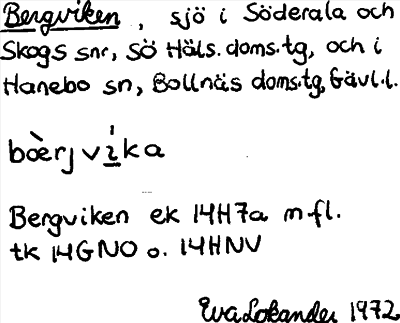 Bergviken, sjö i Söderala och
Skogs snr, SÖ Häls. doms.tg, och i
Hanebo sn, Bollnäs doms.tg, Gävl.l.
bòerjvi̍ka
Bergviken ek 14H7a m fl.
tk 14GNO o. 14HNV
Eva Lokander 1972